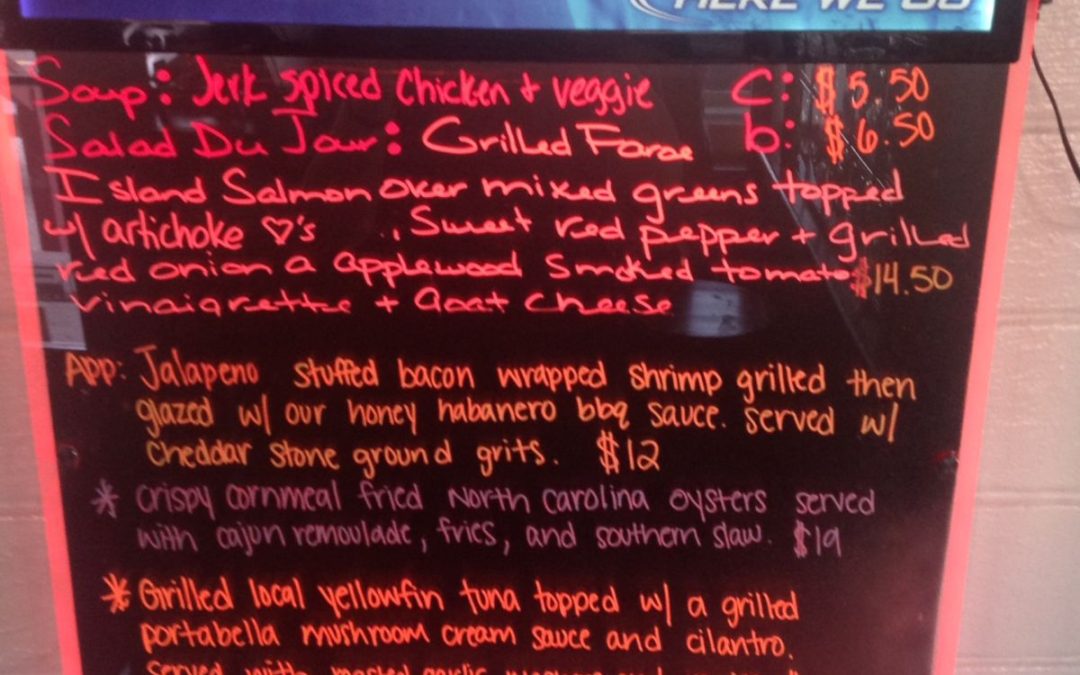 HERE WE GO
Soup: Jerk spiced Chicken + veggie C: $5.50
Salad Du Jour: Grilled Faroe b: $6.50
Island Salmon over mixed greens topped
w/ artichoke ♡'s , Sweet red pepper + grilled
red onion a applewood smoked tomato $14.50
vinaigrette + Goat cheese
App: Jalapeno stuffed bacon wrapped shrimp grilled then
glazed w/ our honey habanero bbq sauce. served w/
Cheddar stone ground grits. $12
* crispy cornmeal fried North Carolina oysters served
with cajun remoulade, fries, and southern slaw. $19
* Grilled local yellowfin tuna topped w/ a grilled
portabella mushroom cream sauce and cilantro.
Served with roasted garlic